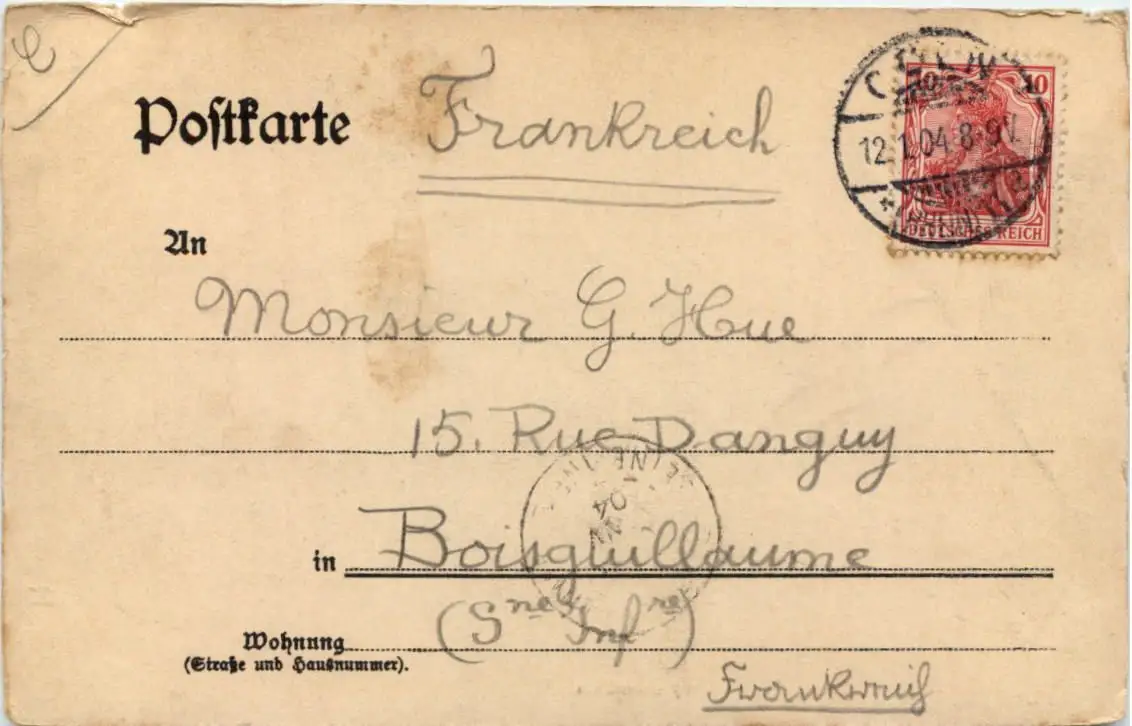 Postkarte Frankreich
CÖLN
12.1.04.8-9V.
(RHEIN) 1 a
10 10
DEUTSCHES REICH
An
Monsieur G. Hue
15. Rue Danguy
SEINE INF
04
in Boisguillaume
(Sne Infre)
Wohnung
(Straße und Hausnummer).
Frankreich